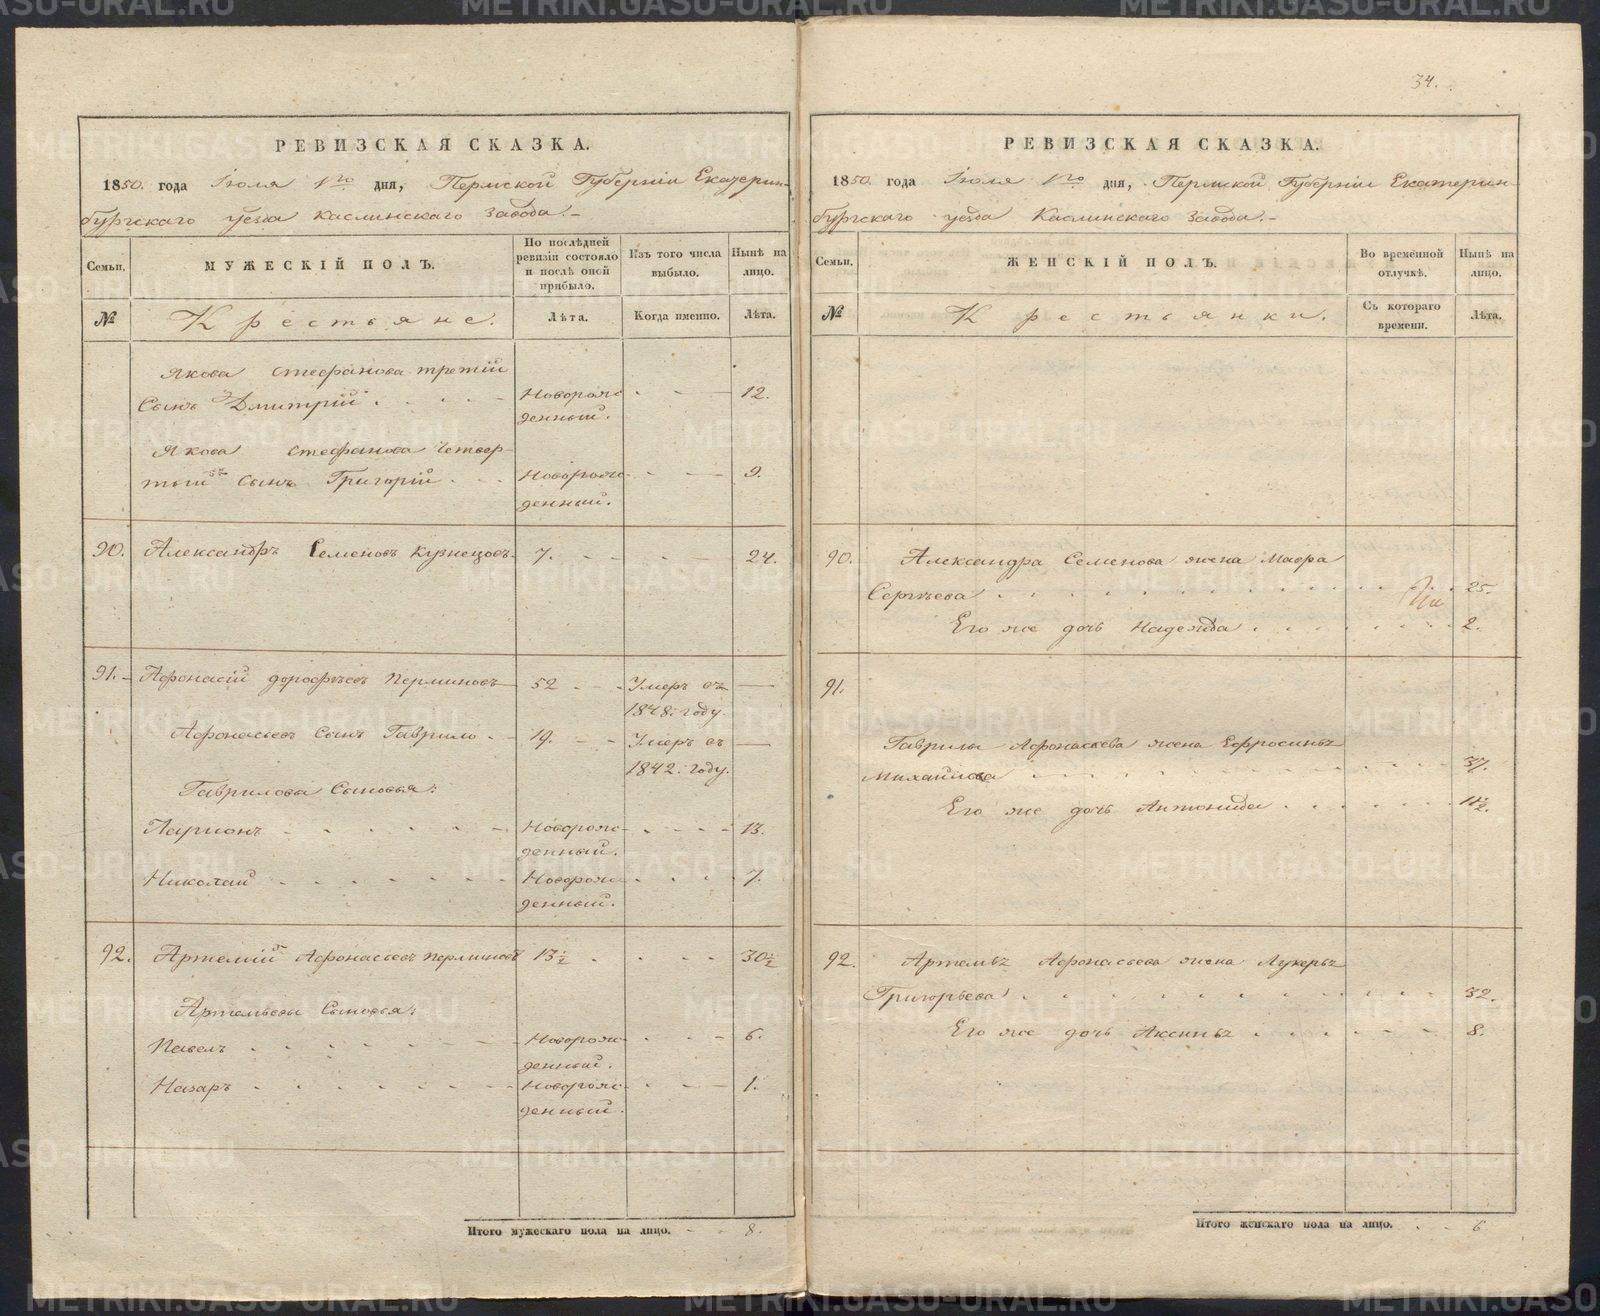 34.
РЕВИЗСКАЯ СКАЗКА.
1850. года Іюля 1го дня, Пермской Губерніи Екатерин-
бургскаго уезда Каслинскаго завода.-
Семьи.
МУЖЕСКІЙ ПОЛЪ.
По послѣдней
ревизіи состояло
и послѣ оной
прибыло.
Изъ того числа
выбыло.
Нынѣ на
лицо.
№
Крестьяне.
Лѣта.
Когда именно.
Лѣта.
Якова Стефанова третій
Сынъ Дмитрій . . . . Новорож- 12.
денный.
Якова Стефанова Четвер-
тый Сынъ Григорій . . . Новорож- 9.
денный.
90. Александръ Семеновъ Кузнецовъ 7. 24.
91. Афонасій Дорофѣевъ Перминовъ 52 Умеръ въ —
1848. году.
Афонасьевъ Сынъ Гаврило 19. Умеръ въ —
1842. году.
Гавриловы Сыновья:
Ларионъ . . . . Новорож- 13.
денный.
Николай . . . . Новорож- 7.
денный.
92. Артемій Афонасьевъ Перминовъ 13½ 30½
Артемьевы Сыновья:
Павелъ . . . . Новорож- 6.
денный.
Назаръ . . . . Новорож- 1.
денный.
Итого мужескаго пола на лицо. 8.
РЕВИЗСКАЯ СКАЗКА.
1850. года Іюля 1го дня, Пермской Губерніи Екатерин-
бургскаго уезда Каслинскаго завода.-
Семьи.
ЖЕНСКІЙ ПОЛЪ.
Во временной
отлучкѣ.
Нынѣ на
лицо.
№
Крестьянки.
Съ котораго
времени.
Лѣта.
90. Александра Семенова жена Мавра
Сергѣева . . . . 25.
Его же дочь Надежда . . . . 2.
91.
Гаврилы Афонасьева жена Ефросинья
Михайлова . . . . 37.
Его же дочь Антонида . . . . 11½.
92. Артемья Афонасьева жена Лукерья
Григорьева . . . . 32.
Его же дочь Аксинья . . . . 8.
Итого женскаго пола на лицо. 6
METRIKI.GASO-URAL.RU